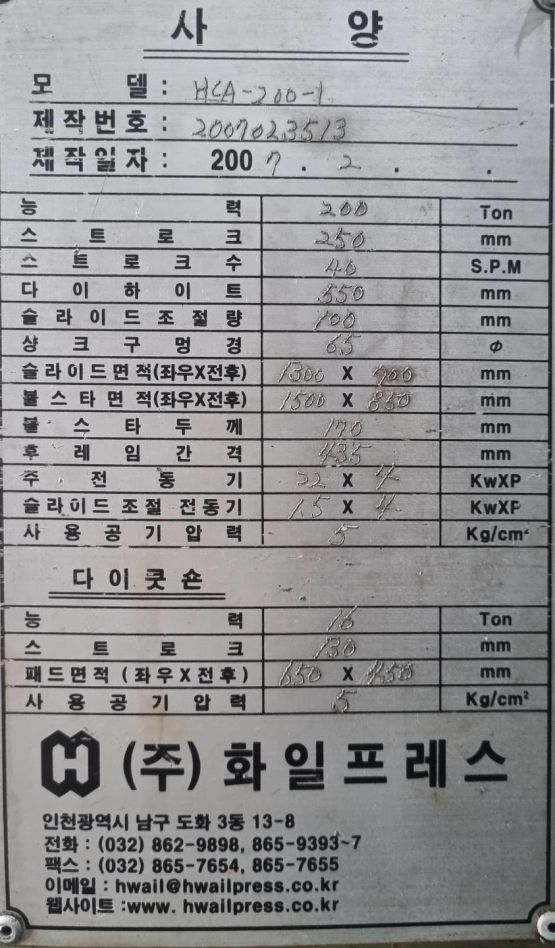 사 양
모 델 : HCA-200-1
제작번호 : 2007023513
제작일자 : 2007 . 2 . .
능 력 200 Ton
스 트 로 크 250 mm
스 트 로 크 수 40 S.P.M
다 이 하 이 트 550 mm
슬 라 이 드 조 절 량 100 mm
샹 크 구 멍 경 65 ф
슬라이드면적(좌우X전후) 1300 X 700 mm
볼스타면적(좌우X전후) 1500 X 850 mm
볼 스 타 두 께 170 mm
후 레 임 간 격 435 mm
주 전 동 기 22 X 4 KwXP
슬라이드 조절 전동기 1.5 X 4 KwXP
사 용 공 기 압 력 5 Kg/cm²
다이쿳숀
능 력 16 Ton
스 트 로 크 130 mm
패드면적 (좌우X전후) 650 X 450 mm
사 용 공 기 압 력 5 Kg/cm²
(주) 화일프레스
인천광역시 남구 도화 3동 13-8
전화 : (032) 862-9898, 865-9393~7
팩스 : (032) 865-7654, 865-7655
이메일 : hwail@hwailpress.co.kr
웹사이트 :www. hwailpress.co.kr